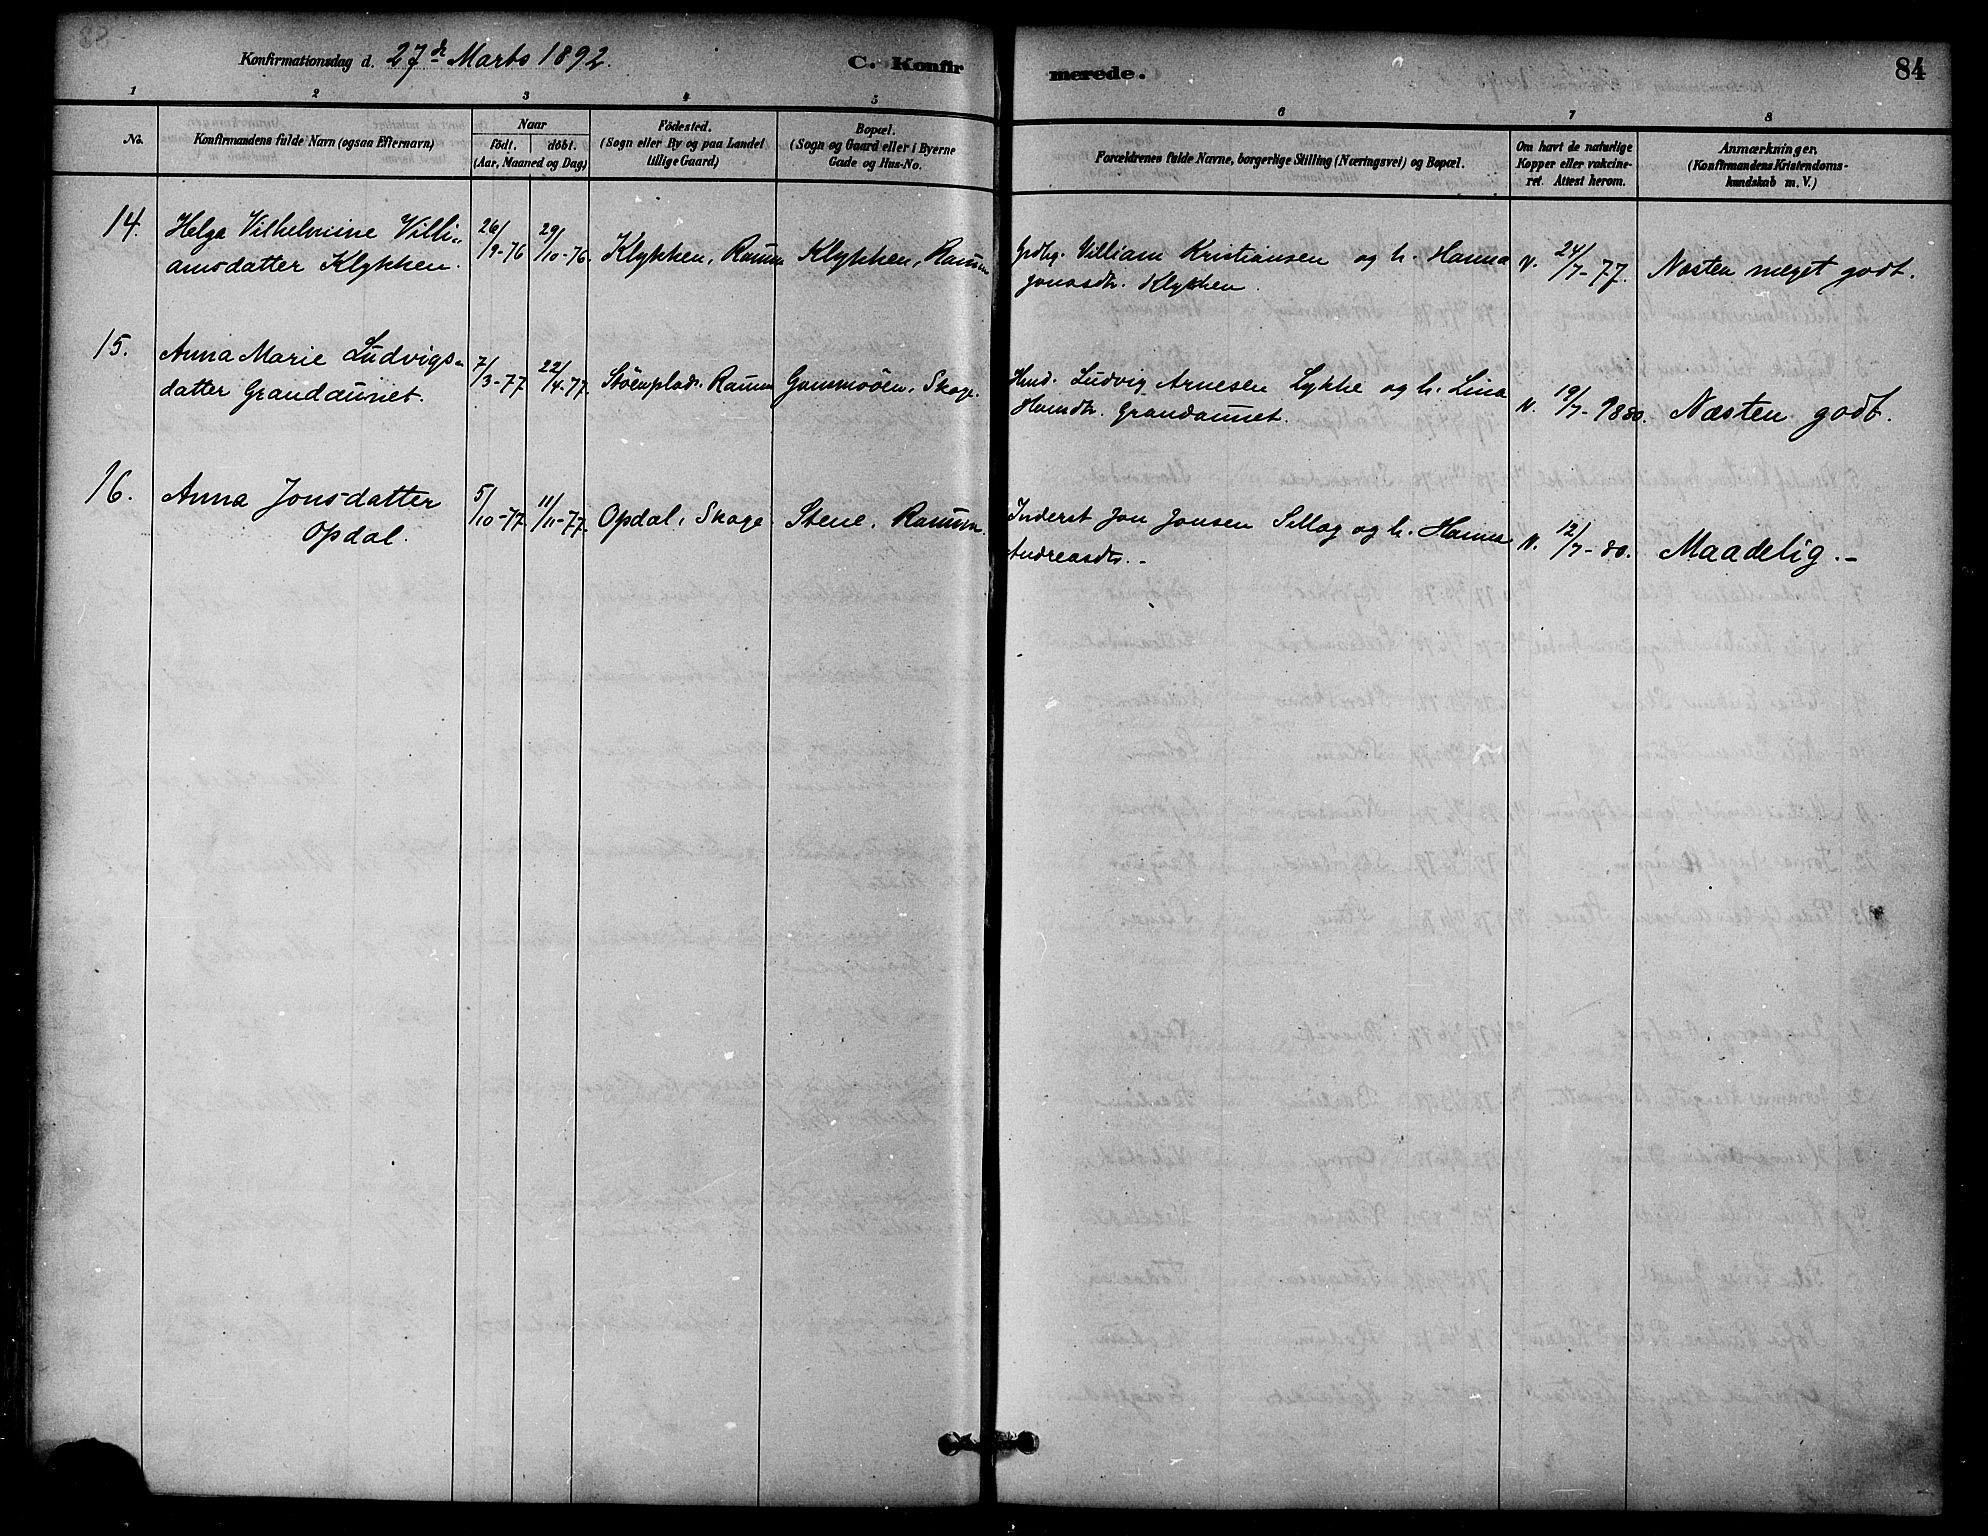 Konfirmationsdag d. 27de Marts 1892.
C. Konfirmerede.
84
1 2 3 4 5 6 7 8
No.
Konfirmandens fulde Navn (ogsaa Efternavn)
Naar
födt. döbt.
(Aar, Maaned og Dag)
Födested.
(Sogn eller By og paa Landet
tillige Gaard)
Bopæl.
(Sogn og Gaard eller i Byerne
Gade og Hus-No.
Forældrenes fulde Navne, borgerlige Stilling (Næringsvei) og Bopæl.
Om havt de naturlige
Kopper eller vakcine-
ret. Attest herom.
Anmærkninger,
(Konfirmandens Kristendoms-
kundskab m. V.)
14. Helga Vilhelmine Villi-
amsdatter Klykken.
26/9-76 29/10-76. Klykken, Ranum Klykken, Ranum
Grdbg. Villiam Kristiansen og h. Hanna
Jonasdtr. Klykken.
V. 24/7-77. Næsten meget godt.
15. Anna Marie Ludvigs-
datter Grandaunet.
7/3-77 22/4-77. Støenplads. Ranum Gammoöen, Skage.
Husd. Ludvig Arnesen Lykke og h. Lina
Hansdtr. Grandaunet.
V. 19/7-1880. Næsten godt.
16. Anna Jonsdatter
Opdal.
5/10-77 11/11-77. Opdal, Skage. Stene, Ranum.
Inderst Jon Jonsen Sellæg og h. Hanna
Andreasdtr.-
V. 12/7-80. Maadelig.-